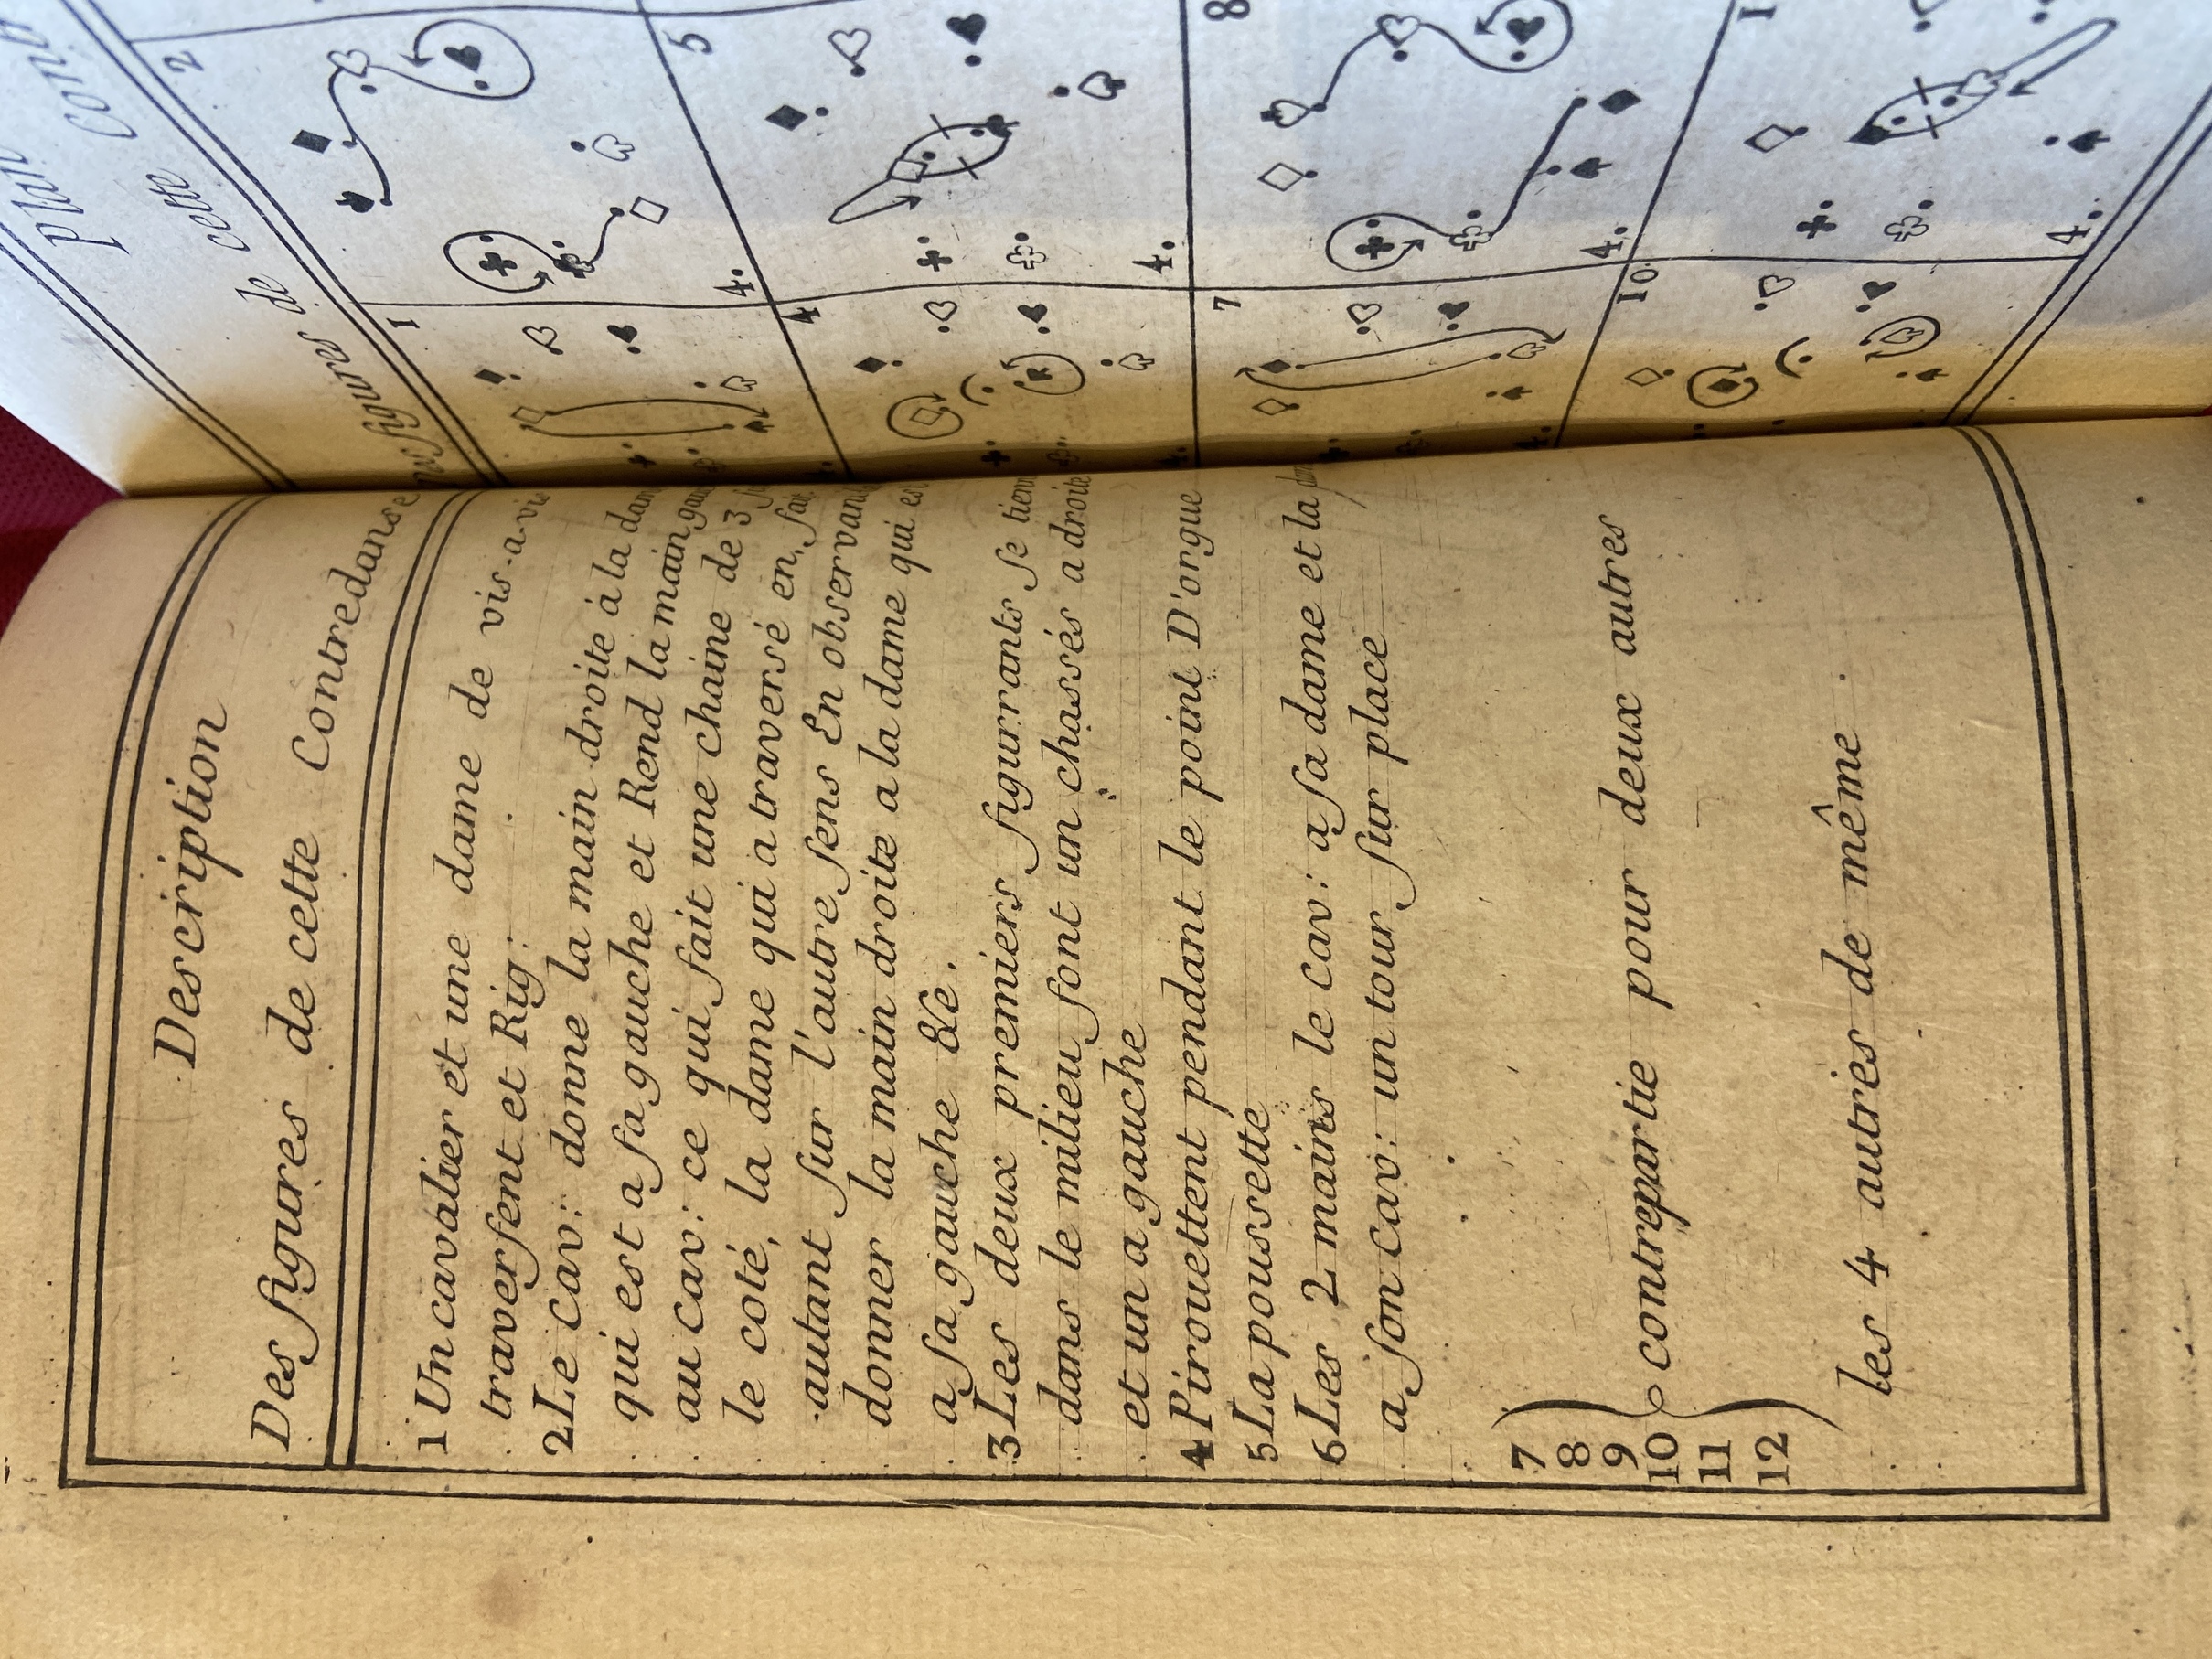 Description
Des figures de cette Contredanse
1 Un cavalier et une dame de vis-a-vis
traversent et Rig:
2 Le Cav: donne la main droite à la
qui est a sa gauche et Rend la main
au cav: ce qui fait une chaine de 3
le coté, la dame qui a traversé en fait
autant sur l'autre sens En observant
donner la main droite a la dame qui est
a sa gauche &c.
3 Les deux premiers figurrants se
dans le milieu font un chassés a droite
et un a gauche
4 Pirouettent pendant le point D'orgue
5 La poussette
6 Les 2 mains le cav: a sa dame et la
a son cav: un tour sur place
7
8
9
10 contrepartie pour deux autres
11
12
les 4 autres de même.
Plan
figures de cette
1
2
4.
4
5
4.
7
8
4.
10
4.